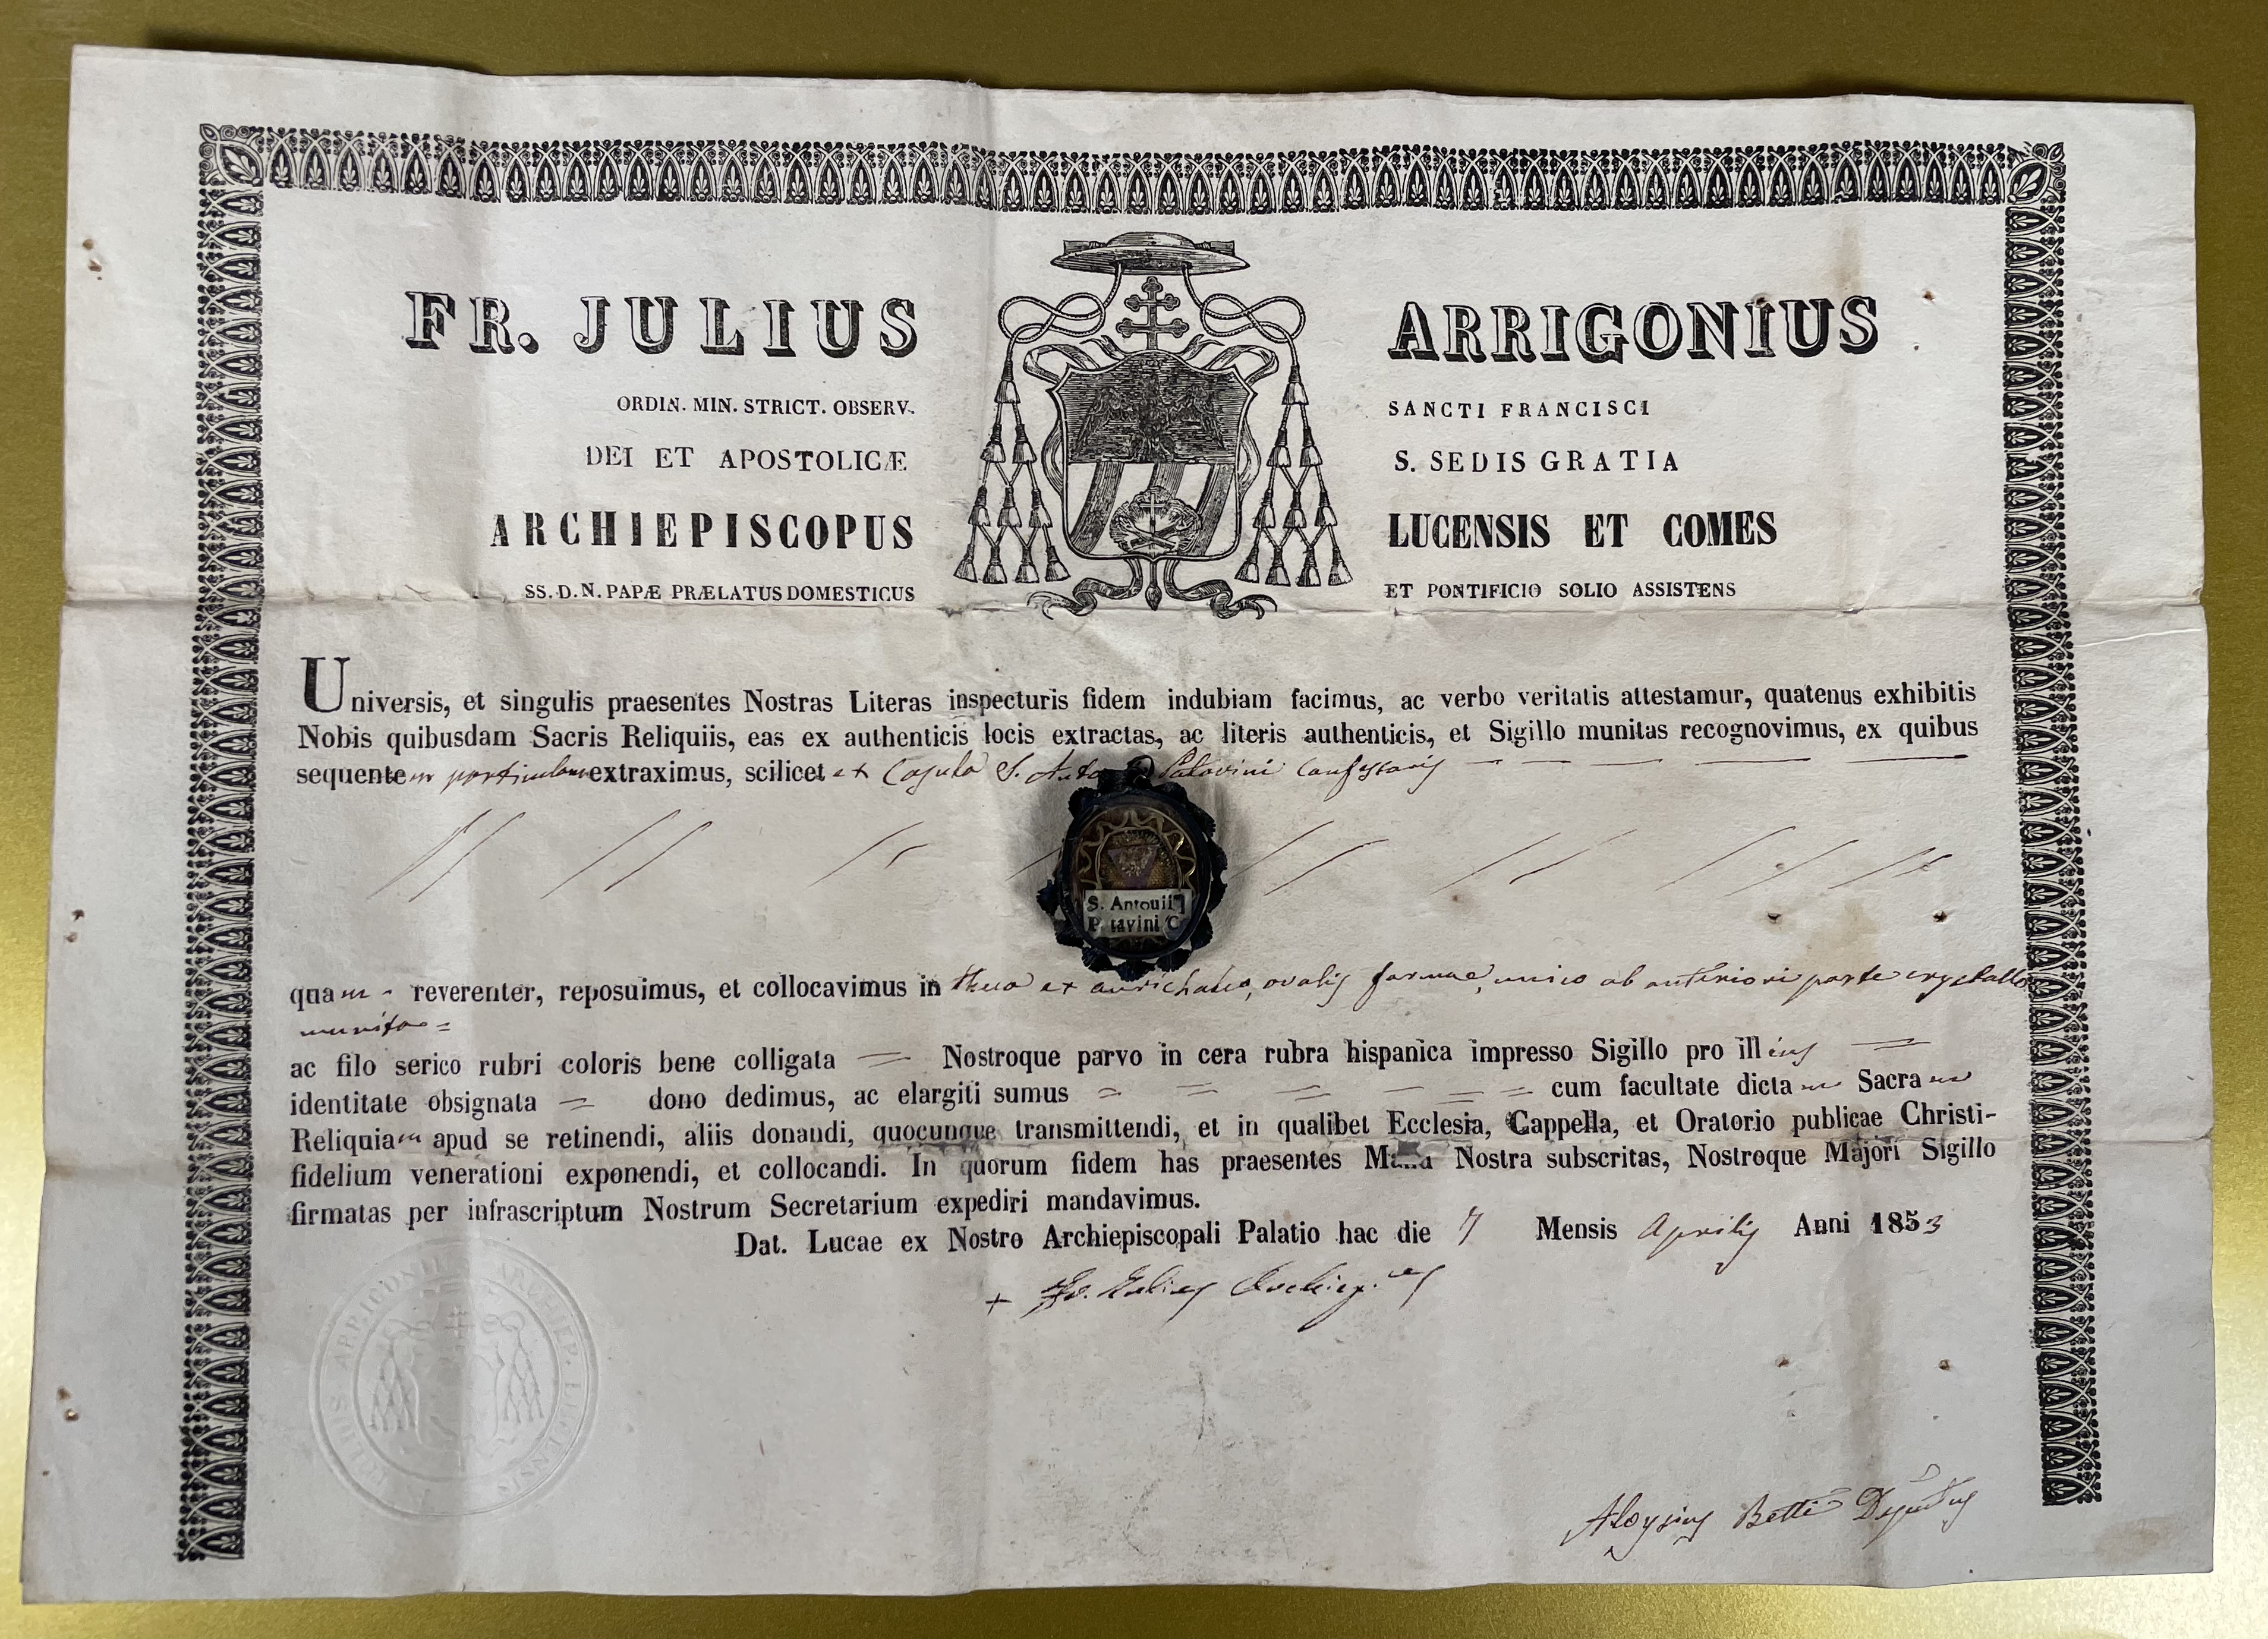 FR. JULIUS ARRIGONIUS
ORDIN. MIN. STRICT. OBSERV. SANCTI FRANCISCI
DEI ET APOSTOLICÆ S. SEDIS GRATIA
ARCHIEPISCOPUS LUCENSIS ET COMES
SS. D. N. PAPÆ PRÆLATUS DOMESTICUS ET PONTIFICIO SOLIO ASSISTENS
Universis, et singulis praesentes Nostras Literas inspecturis fidem indubiam facimus, ac verbo veritatis attestamur, quatenus exhibitis
Nobis quibusdam Sacris Reliquiis, eas ex authenticis locis extractas, ac literis authenticis, et Sigillo munitas recognovimus, ex quibus
sequentem particulam extraximus, scilicet ex S. Patavini Confessoris
S. Antonii
P tavini C
quam reverenter, reposuimus, et collocavimus in theca ex aurichalco, ovalis formae, unico ab anteriori parte crystallo
munita =
ac filo serico rubri coloris bene colligata = Nostroque parvo in cera rubra hispanica impresso Sigillo pro illius =
identitate obsignata = dono dedimus, ac elargiti sumus = = = = = cum facultate dictam Sacram
Reliquiam apud se retinendi, aliis donandi, quocunque transmittendi, et in qualibet Ecclesia, Cappella, et Oratorio publicae Christi-
fidelium venerationi exponendi, et collocandi. In quorum fidem has praesentes Manu Nostra subscritas, Nostroque Majori Sigillo
firmatas per infrascriptum Nostrum Secretarium expediri mandavimus.
Dat. Lucae ex Nostro Archiepiscopali Palatio hac die 7 Mensis Aprilis Anni 1853
+ Fr. Julius Archiep.us
JULIUS ARRIGONIUS ARCHIEP. LUCENSIS
Aloysius Betti Deputatus